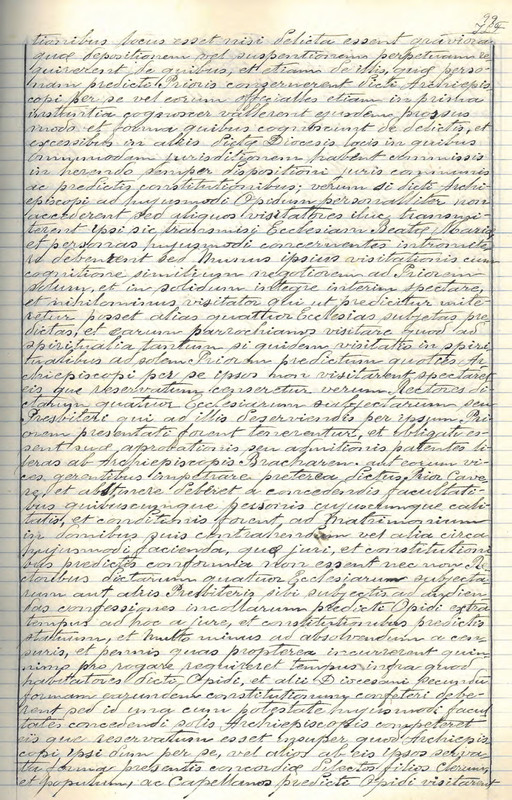 99
tionibus locus esset nisi delicta essent graviora
quæ depositionem vel suspentionem perpetuam re
quirerent de quibus, et etiam de illis, quæ perso
nam predicti Prioris concernerent dicti Archiepis
copi per se vel eorum officialles etiam in prisma
instantia cognoscer valerent eysdem prossus
modo et forma quibus cognoscunt de delictis, et
excessibus in aliis dictæ Diocesis locis in quibus
omnymodam jurisditionem habent commissis
in herendo semper dispositioni juris communis
ac predictis constitutionibus; verum si dicti Archi
episcopi ad hujusmodi Opidum personalliter non
accederent sed aliquos visitattores illuc transmi
terent ipsi sic transmissi Ecclesiam Beatæ Mariæ
et personas hujusmodi concernentes intromete
re deberent sed Munus ipsius visitationis cum
cognitione similium negotiorem ad Priorem
solum, et in solidum integre interim spectaret,
et nihilominus visitator qui ut predicitur mite
retur posset alias quattuor Ecclesias subjetas pre
dictas, et earum parrochianos visitare quod ad
spiritualia tantum si quidem visitatis in spiri
tualibus ad solem Priorem predictum quoties Ar
chiepiscopi per se ipsos non visitarent spectaret
eis que reservatum censeretur verum Rectores di
ctarum quatuor Ecclesiarum subjectarum seu
Presbiteri qui ad illis deserviendis per ipsum Pri
orem presentati forent tenerentur, et obligati es
sent suæ, aprobationis seu admitionis patentes li
teras ab Archiepiscopis Bracharem. aut eorum vi
ces gerentibus impetrare preterea dictus Prior Cave
re, et abstinere deberet a concedendis facultati
bus quibuscumque personis cujuscumque cali
tatis, et conditionis forent, ad Matrimonium
in domibus suis contrahendum vel alia circa
hujusmodi facienda, quæ juri, et constitutioni
bus predictis conformia non essent nec non Re
ctoribus dictarum quatuor Ecclesiarum subjecta
rum aut aliis Presbiteris sibi subjectis ad audien
das confessiones incollarum predicti Opidi extra
tempus ad hoc a jure, et constitutionibus predictis
statutum, et multo minus ad absolvendum a cen
suris, et pennis quas propterea incurrerent quin
nimo pro rogare requireret tempus infra quod
habitatores dicti Opidi, et alii Diocesani secundum
formam earundem constitutionum confiteri debe
rent sed id una cum potestate hujusmodi facul
tates concedendi solis Archiepiscopis competeret
iis que reservatum esset insuper quod Archiepis
copi ipsi dum per se, vel alios ab eis ipsos serva
ta forma presentis concordiæ dilectos filios clerum,
et populum, ac Capellanos predicti Opidi visitarent